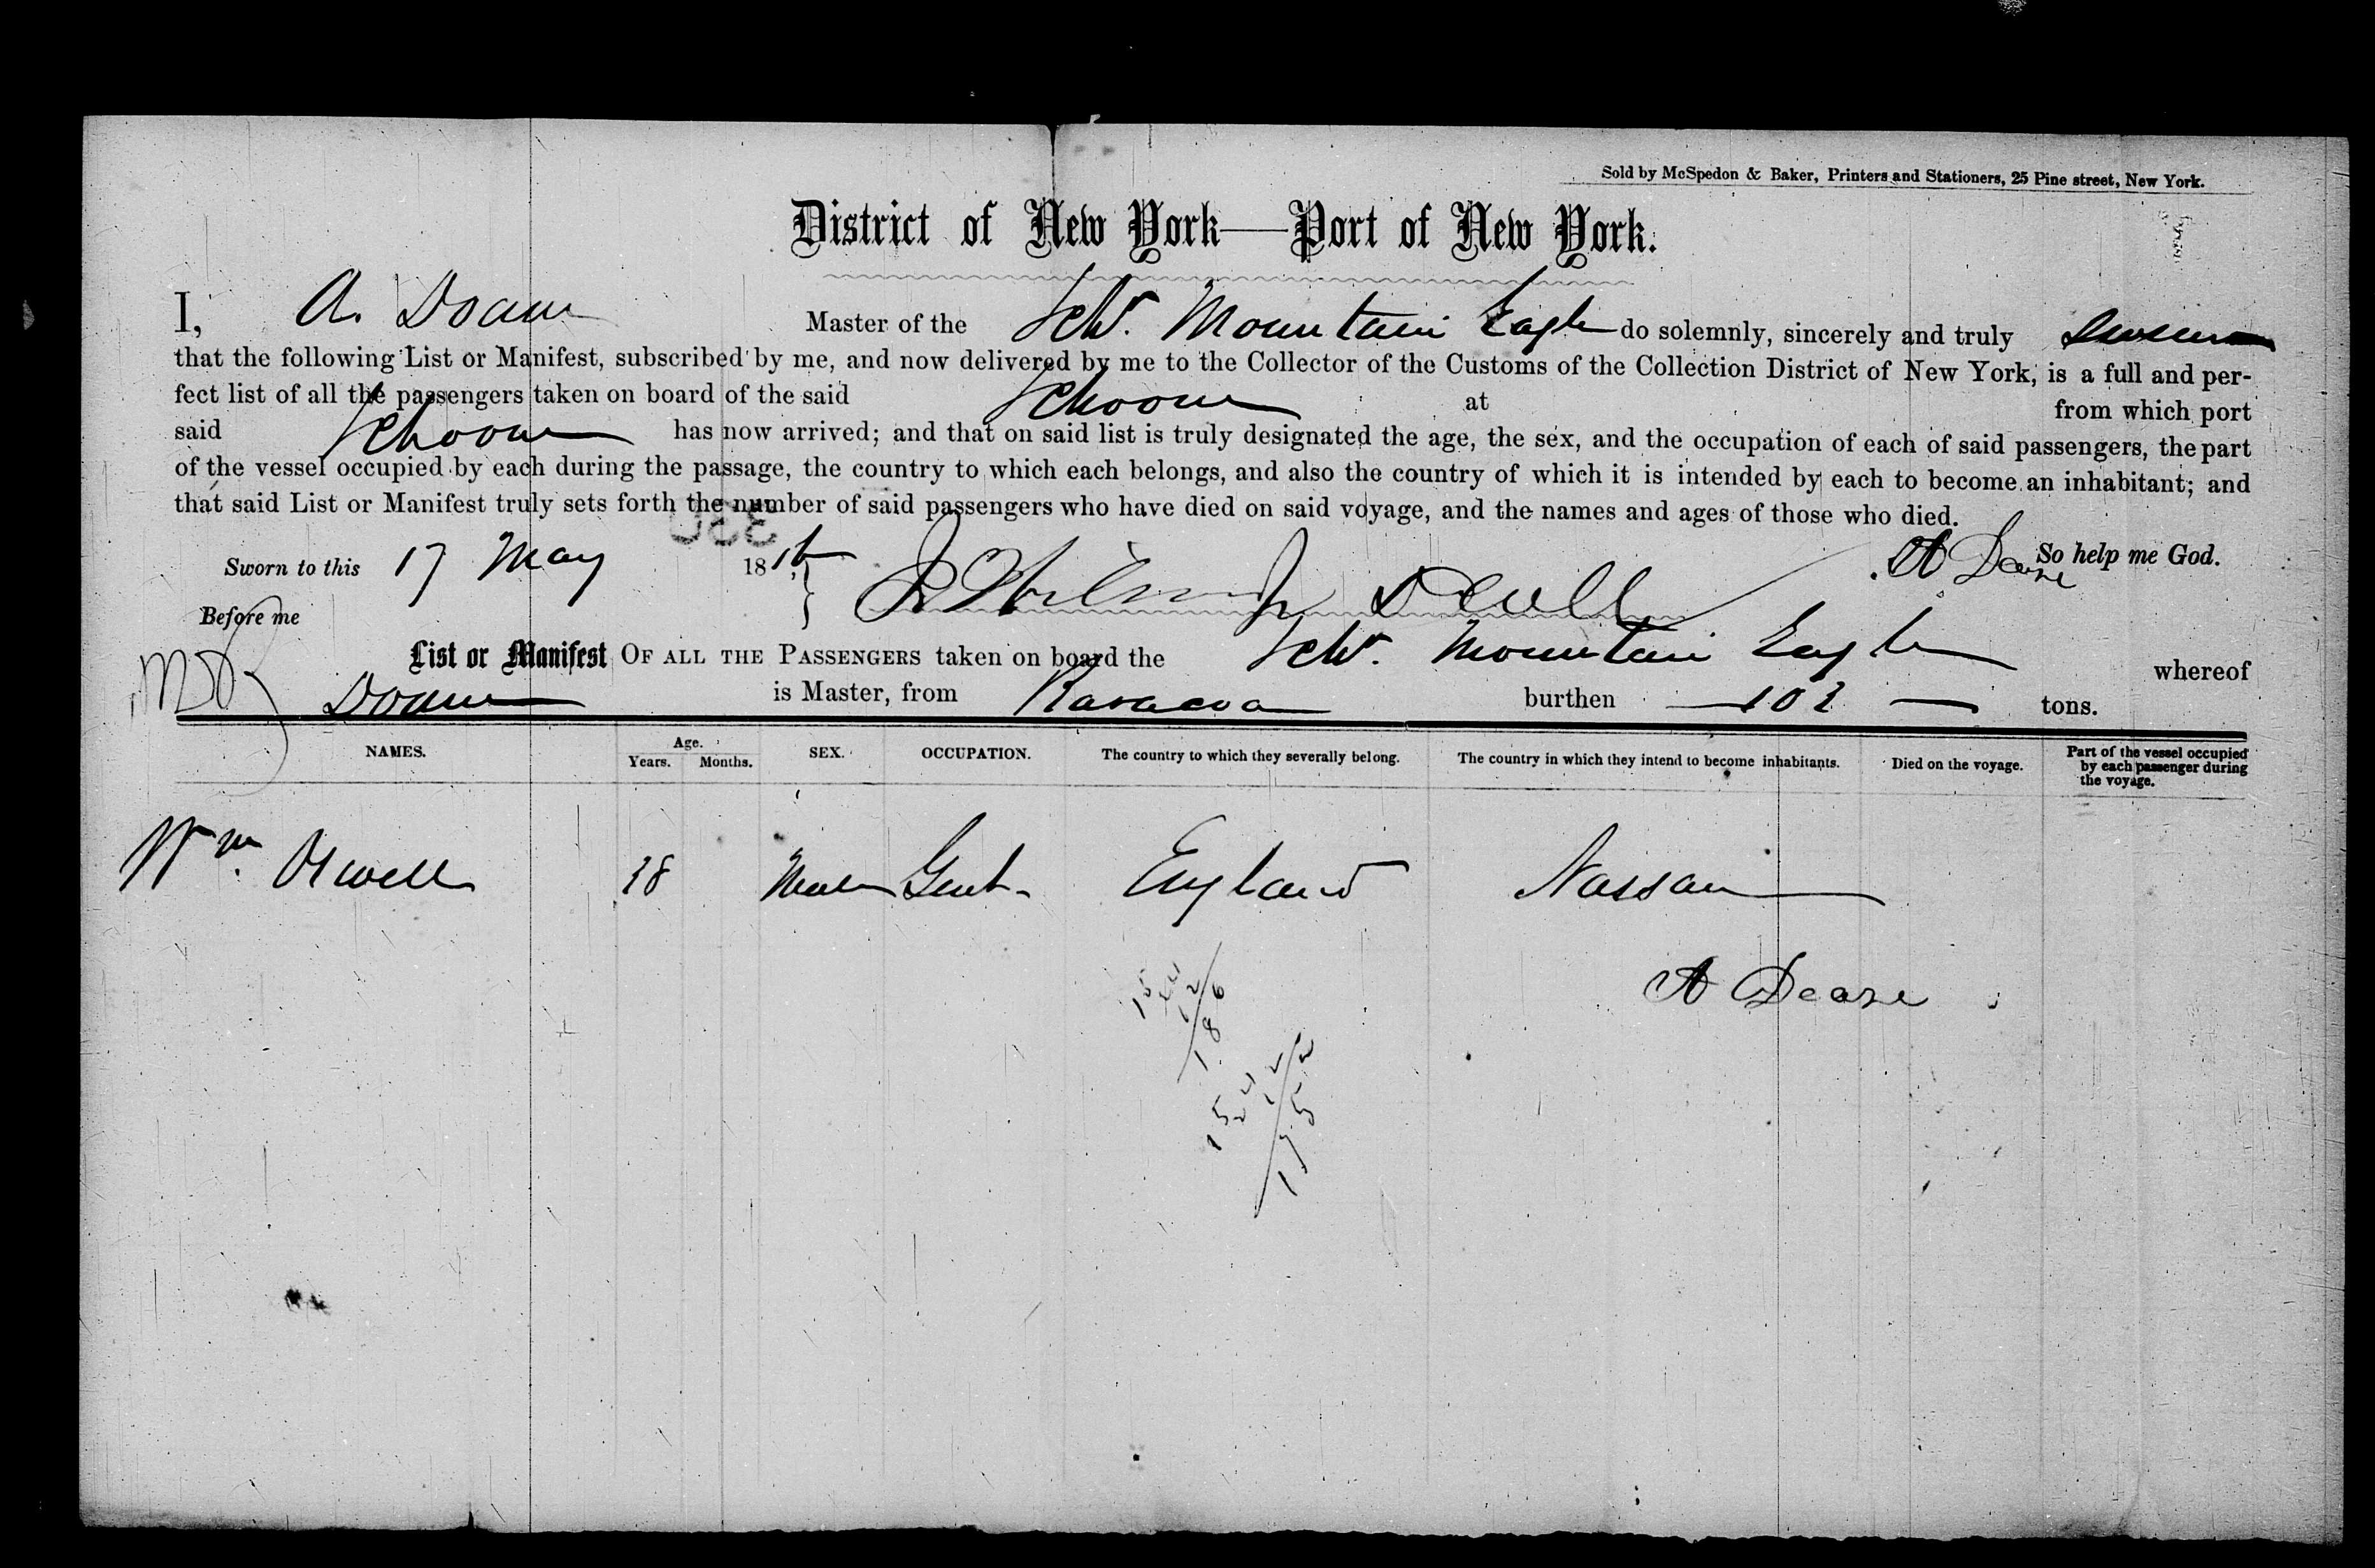 Sold by McSpedon & Baker, Printers and Stationers, 25 Pine street, New York.
District of New York—Port of New York.
I, A. Doane Master of the Schr. Mountain Eagle do solemnly, sincerely and truly swear
that the following List or Manifest, subscribed by me, and now delivered by me to the Collector of the Customs of the Collection District of New York, is a full and per-
fect list of all the passengers taken on board of the said Schooner at from which port
said Schooner has now arrived; and that on said list is truly designated the age, the sex, and the occupation of each of said passengers, the part
of the vessel occupied by each during the passage, the country to which each belongs, and also the country of which it is intended by each to become an inhabitant; and
that said List or Manifest truly sets forth the number of said passengers who have died on said voyage, and the names and ages of those who died.
Sworn to this 17 May 18 A Doane So help me God.
Before me
List or Manifest OF ALL THE PASSENGERS taken on board the Schr. Mountain Eagle whereof
Doane is Master, from burthen tons.
NAMES. Age. Years. Months. SEX. OCCUPATION. The country to which they severally belong. The country in which they intend to become inhabitants. Died on the voyage. Part of the vessel occupied by each passenger during the voyage.
Wm. 38 Male Gent. England Nassau
A Doane
15
12
186
15
12
1752